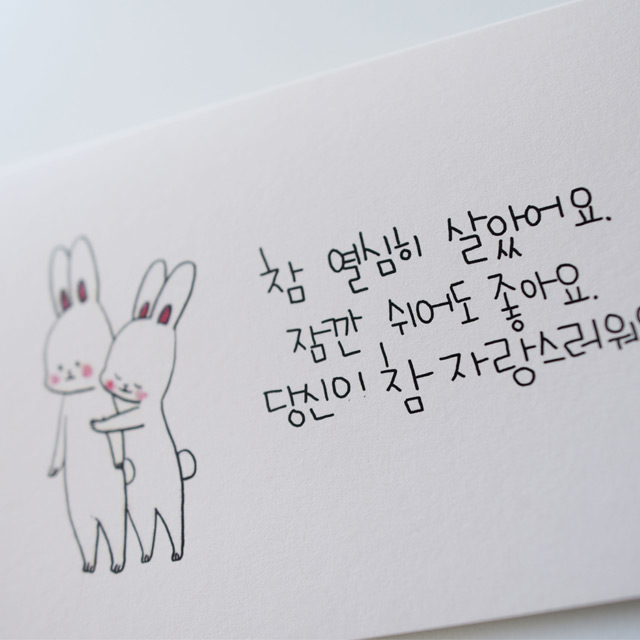 참 열심히 살았어요.
잠깐 쉬어도 좋아요.
당신이 참 자랑스러워